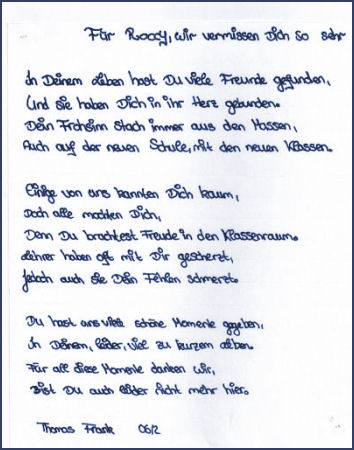 Für Roody, wir vermissen Dich so sehr
In Deinem Leben hast Du viele Freunde gefunden,
Und sie haben Dich in ihr Herz gebunden.
Dein Frohsinn stach immer aus den Massen,
Auch auf der neuen Schule, mit den neuen Klassen.
Einige von uns kannten Dich kaum,
Doch alle mochten Dich,
Denn Du brachtest Freude in den Klassenraum.
Lehrer haben oft mit Dir gescherzt,
Jedoch auch sie Dein Fehlen schmerzt.
Du hast uns viele schöne Momente gegeben,
In Deinem, leider, viel zu kurzem Leben.
Für all diese Momente danken wir,
Bist Du auch leider nicht mehr hier.
Thomas Frank 06/2